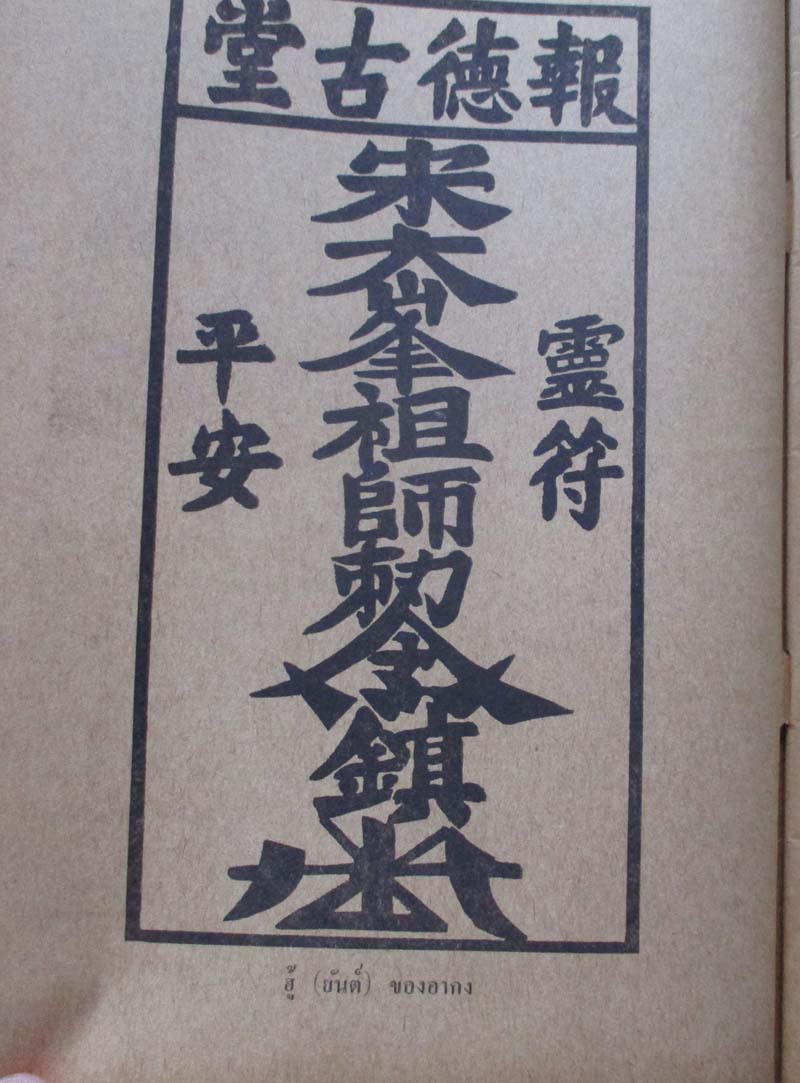 報德古堂
靈符
宋大峯祖師勅令鎮
平安
ฮู้ (ยันต์) ของอากง